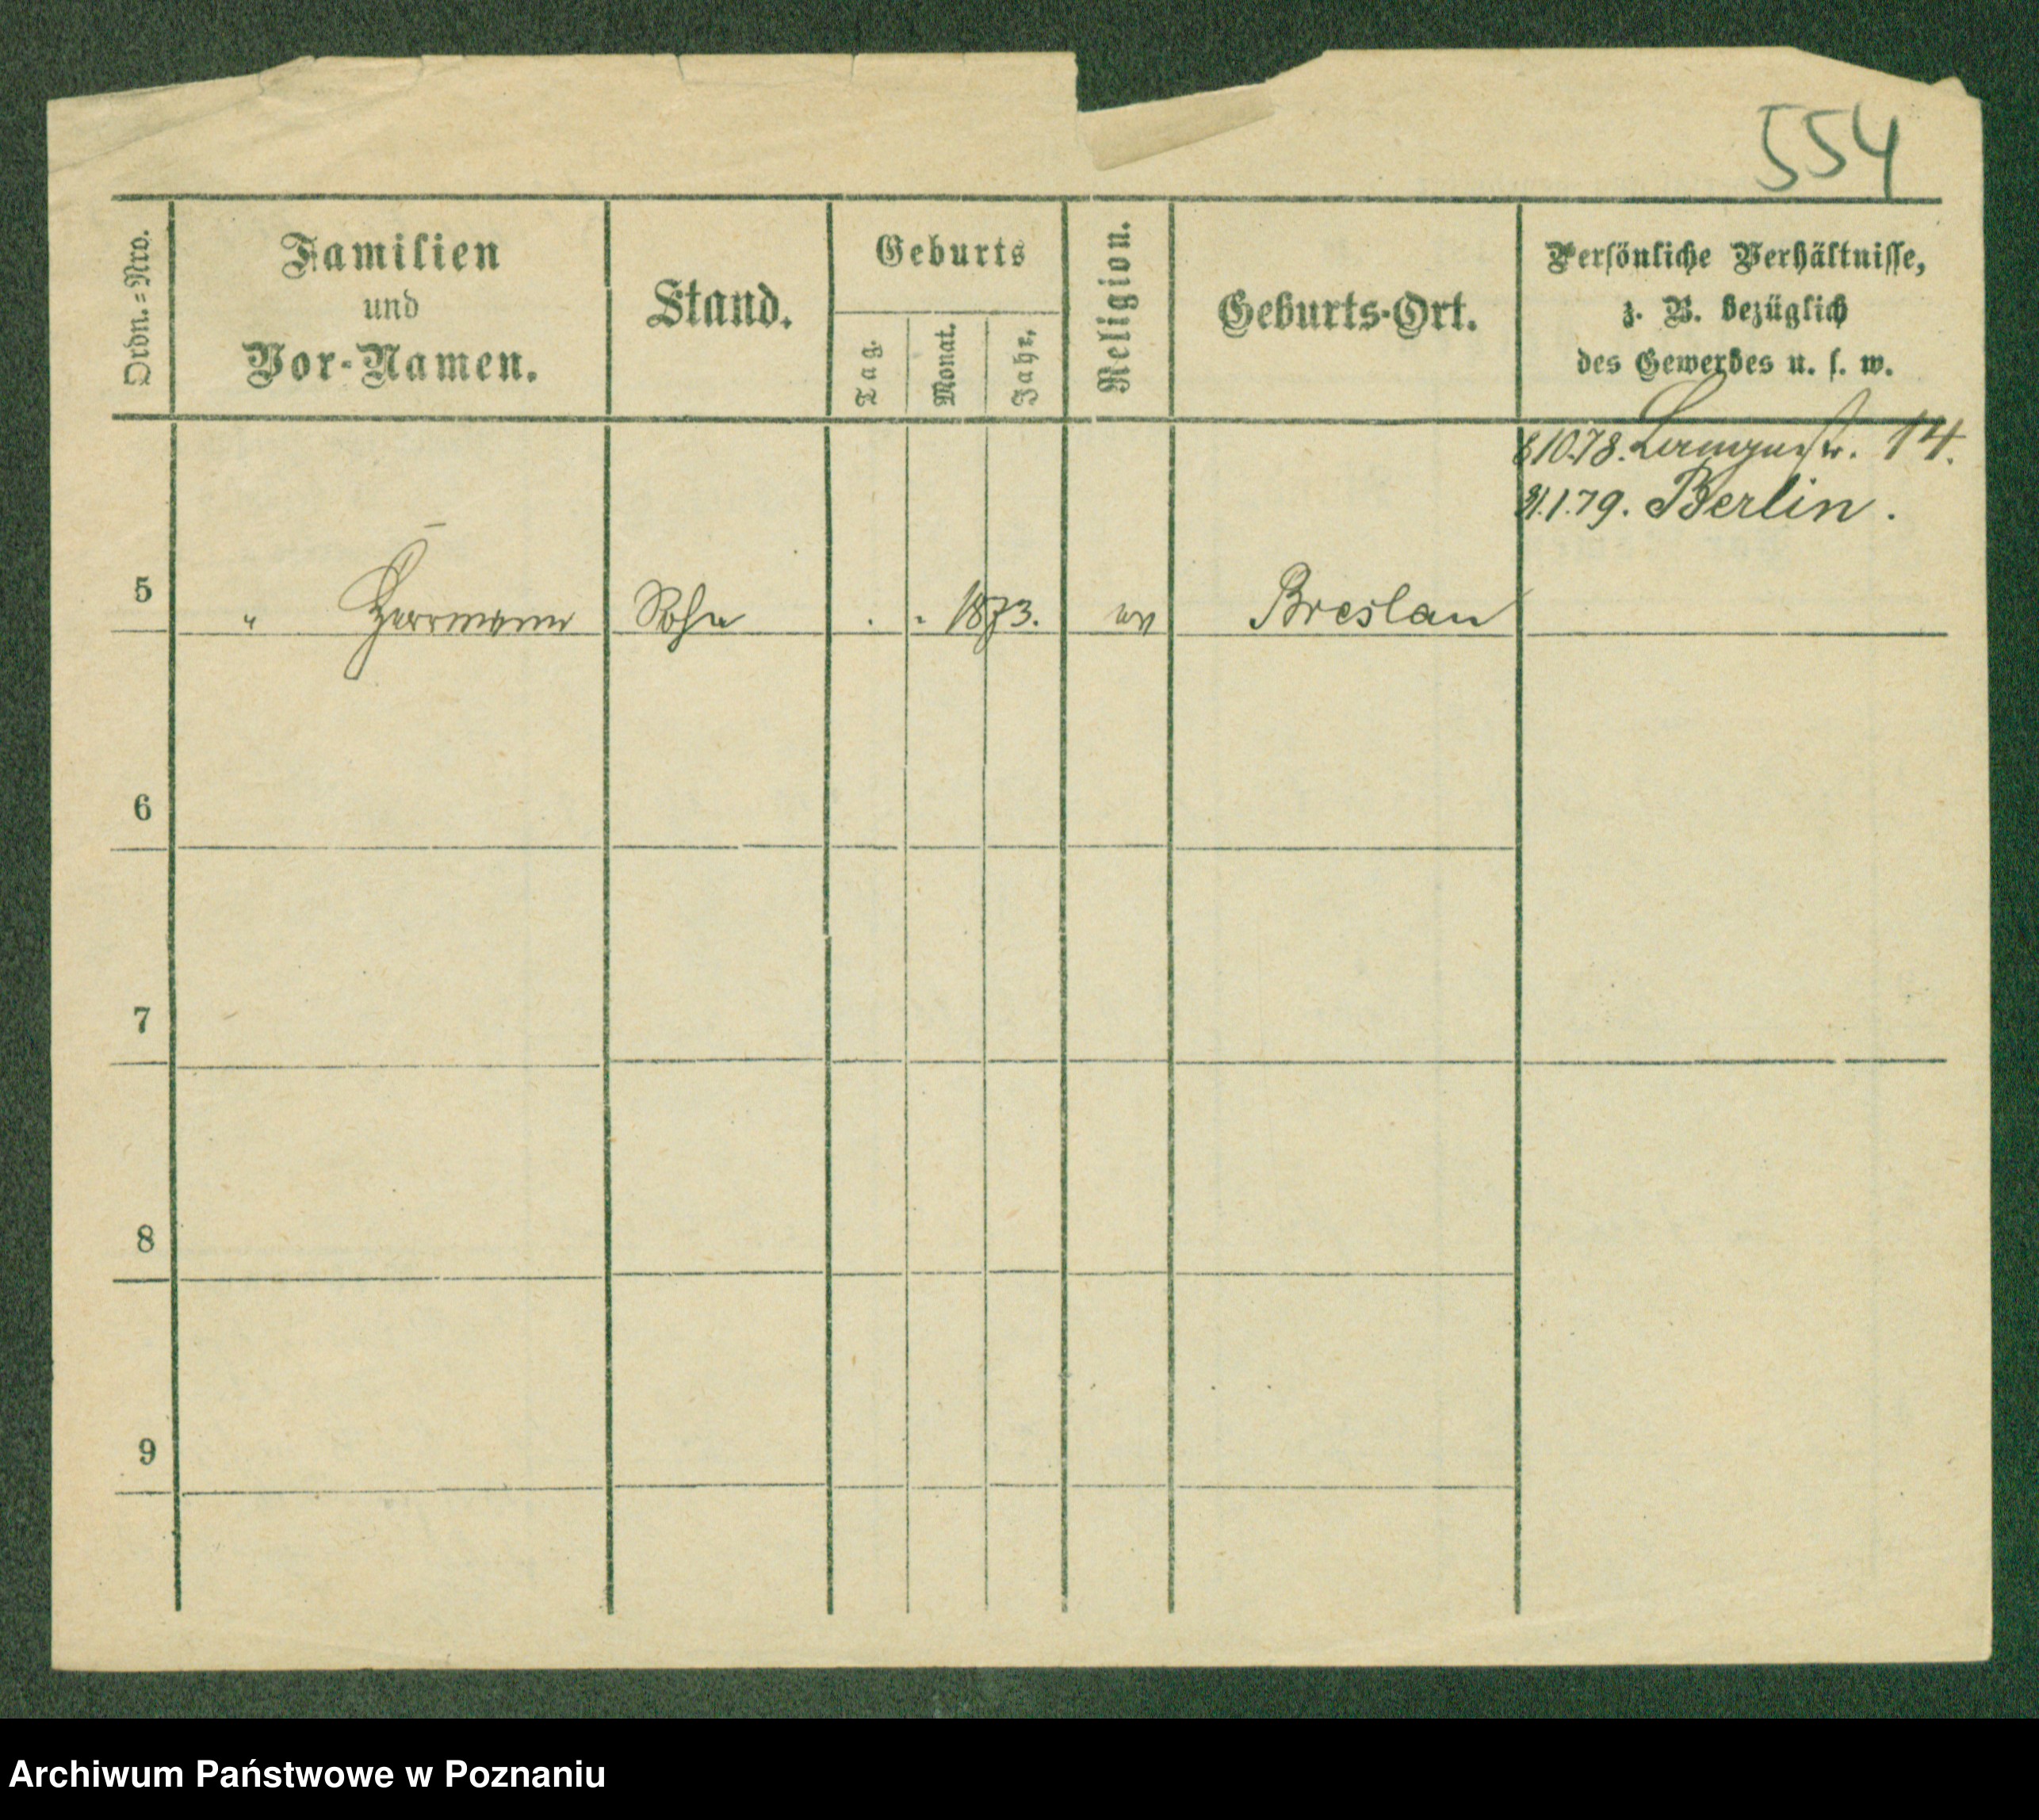 554
Ordn.=Nro.
Familien
und
Vor-Namen.
Stand.
Geburts
Tag.
Monat.
Jahr.
Religion.
Geburts-Ort.
Persönliche Verhältnisse,
z. B. bezüglich
des Gewerbes u. s. w.
10.78. 14.
1.79. Berlin.
5 " Herrmann Sohn . . 1873. ev Breslau
6
7
8
9
Archiwum Państwowe w Poznaniu